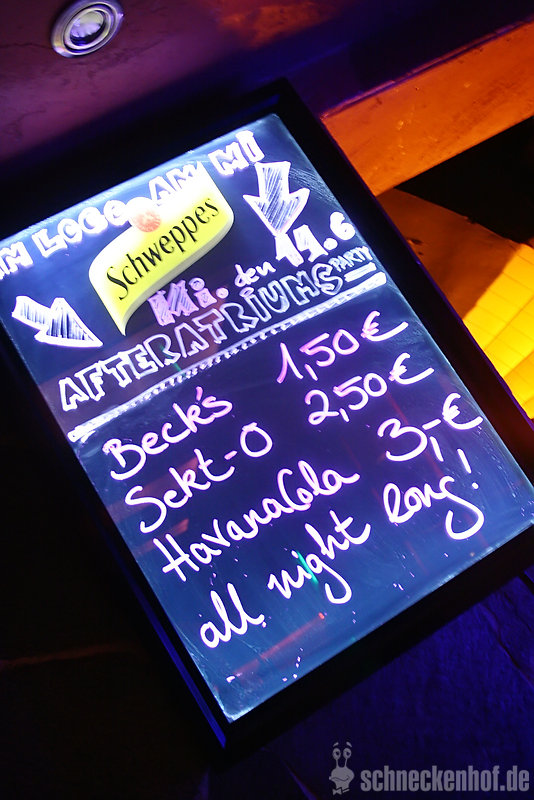 IM LOGO AM MI
Schweppes
Mi. den 11.6
AFTERATRIUMSPARTY
Beck's 1,50€
Sekt-O 2,50€
HavanaCola 3,-€
all night long!
schneckenhof.de